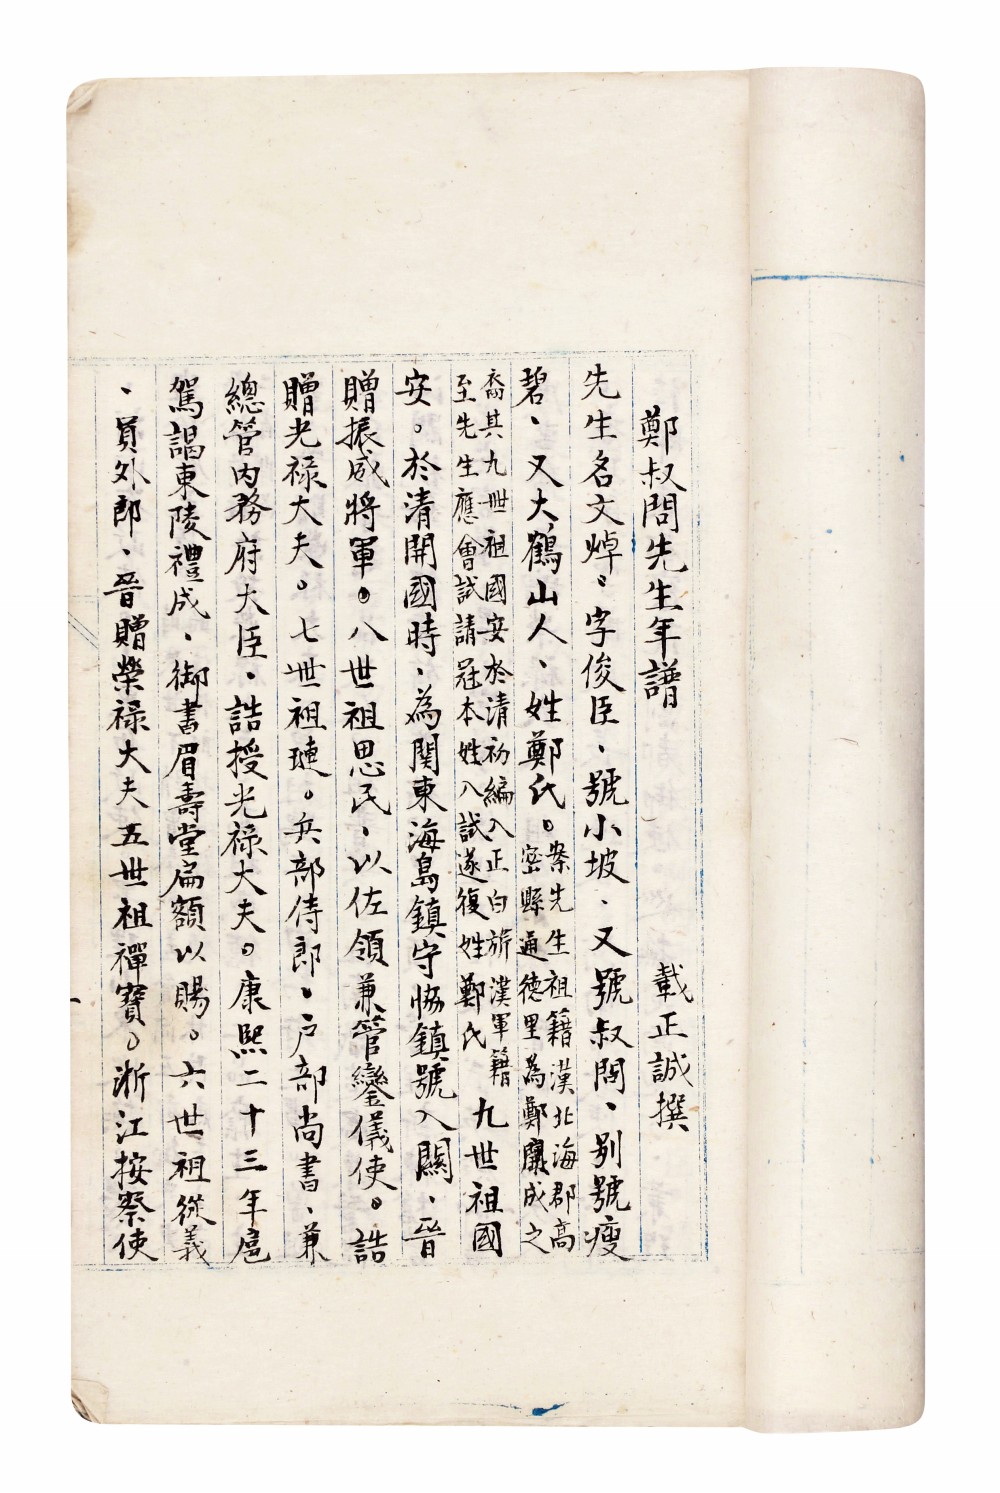 鄭叔問先生年譜　戴正誠撰
先生名文焯。字俊臣、號小坡、又號叔問、別號瘦
碧、又大鶴山人、姓鄭氏。案先生祖籍漢北海郡高
密縣通德里為鄭康成之
裔其九世祖國安於清初編入正白旂漢軍籍
至先生應會試請冠本姓入試遂復姓鄭氏　九世祖國
安。於清開國時、為関東海島鎮守協鎮號入關、晉
贈振威將軍。八世祖思民、以佐領兼管鑾儀使。誥
贈光祿大夫。七世祖璉。兵部侍郎。戶部尚書、兼
總管內務府大臣、誥授光祿大夫。康熙二十三年扈
駕謁東陵禮成、御書眉壽堂扁額以賜。六世祖從義
、員外郎、晉贈榮祿大夫　五世祖禪寶。浙江按察使